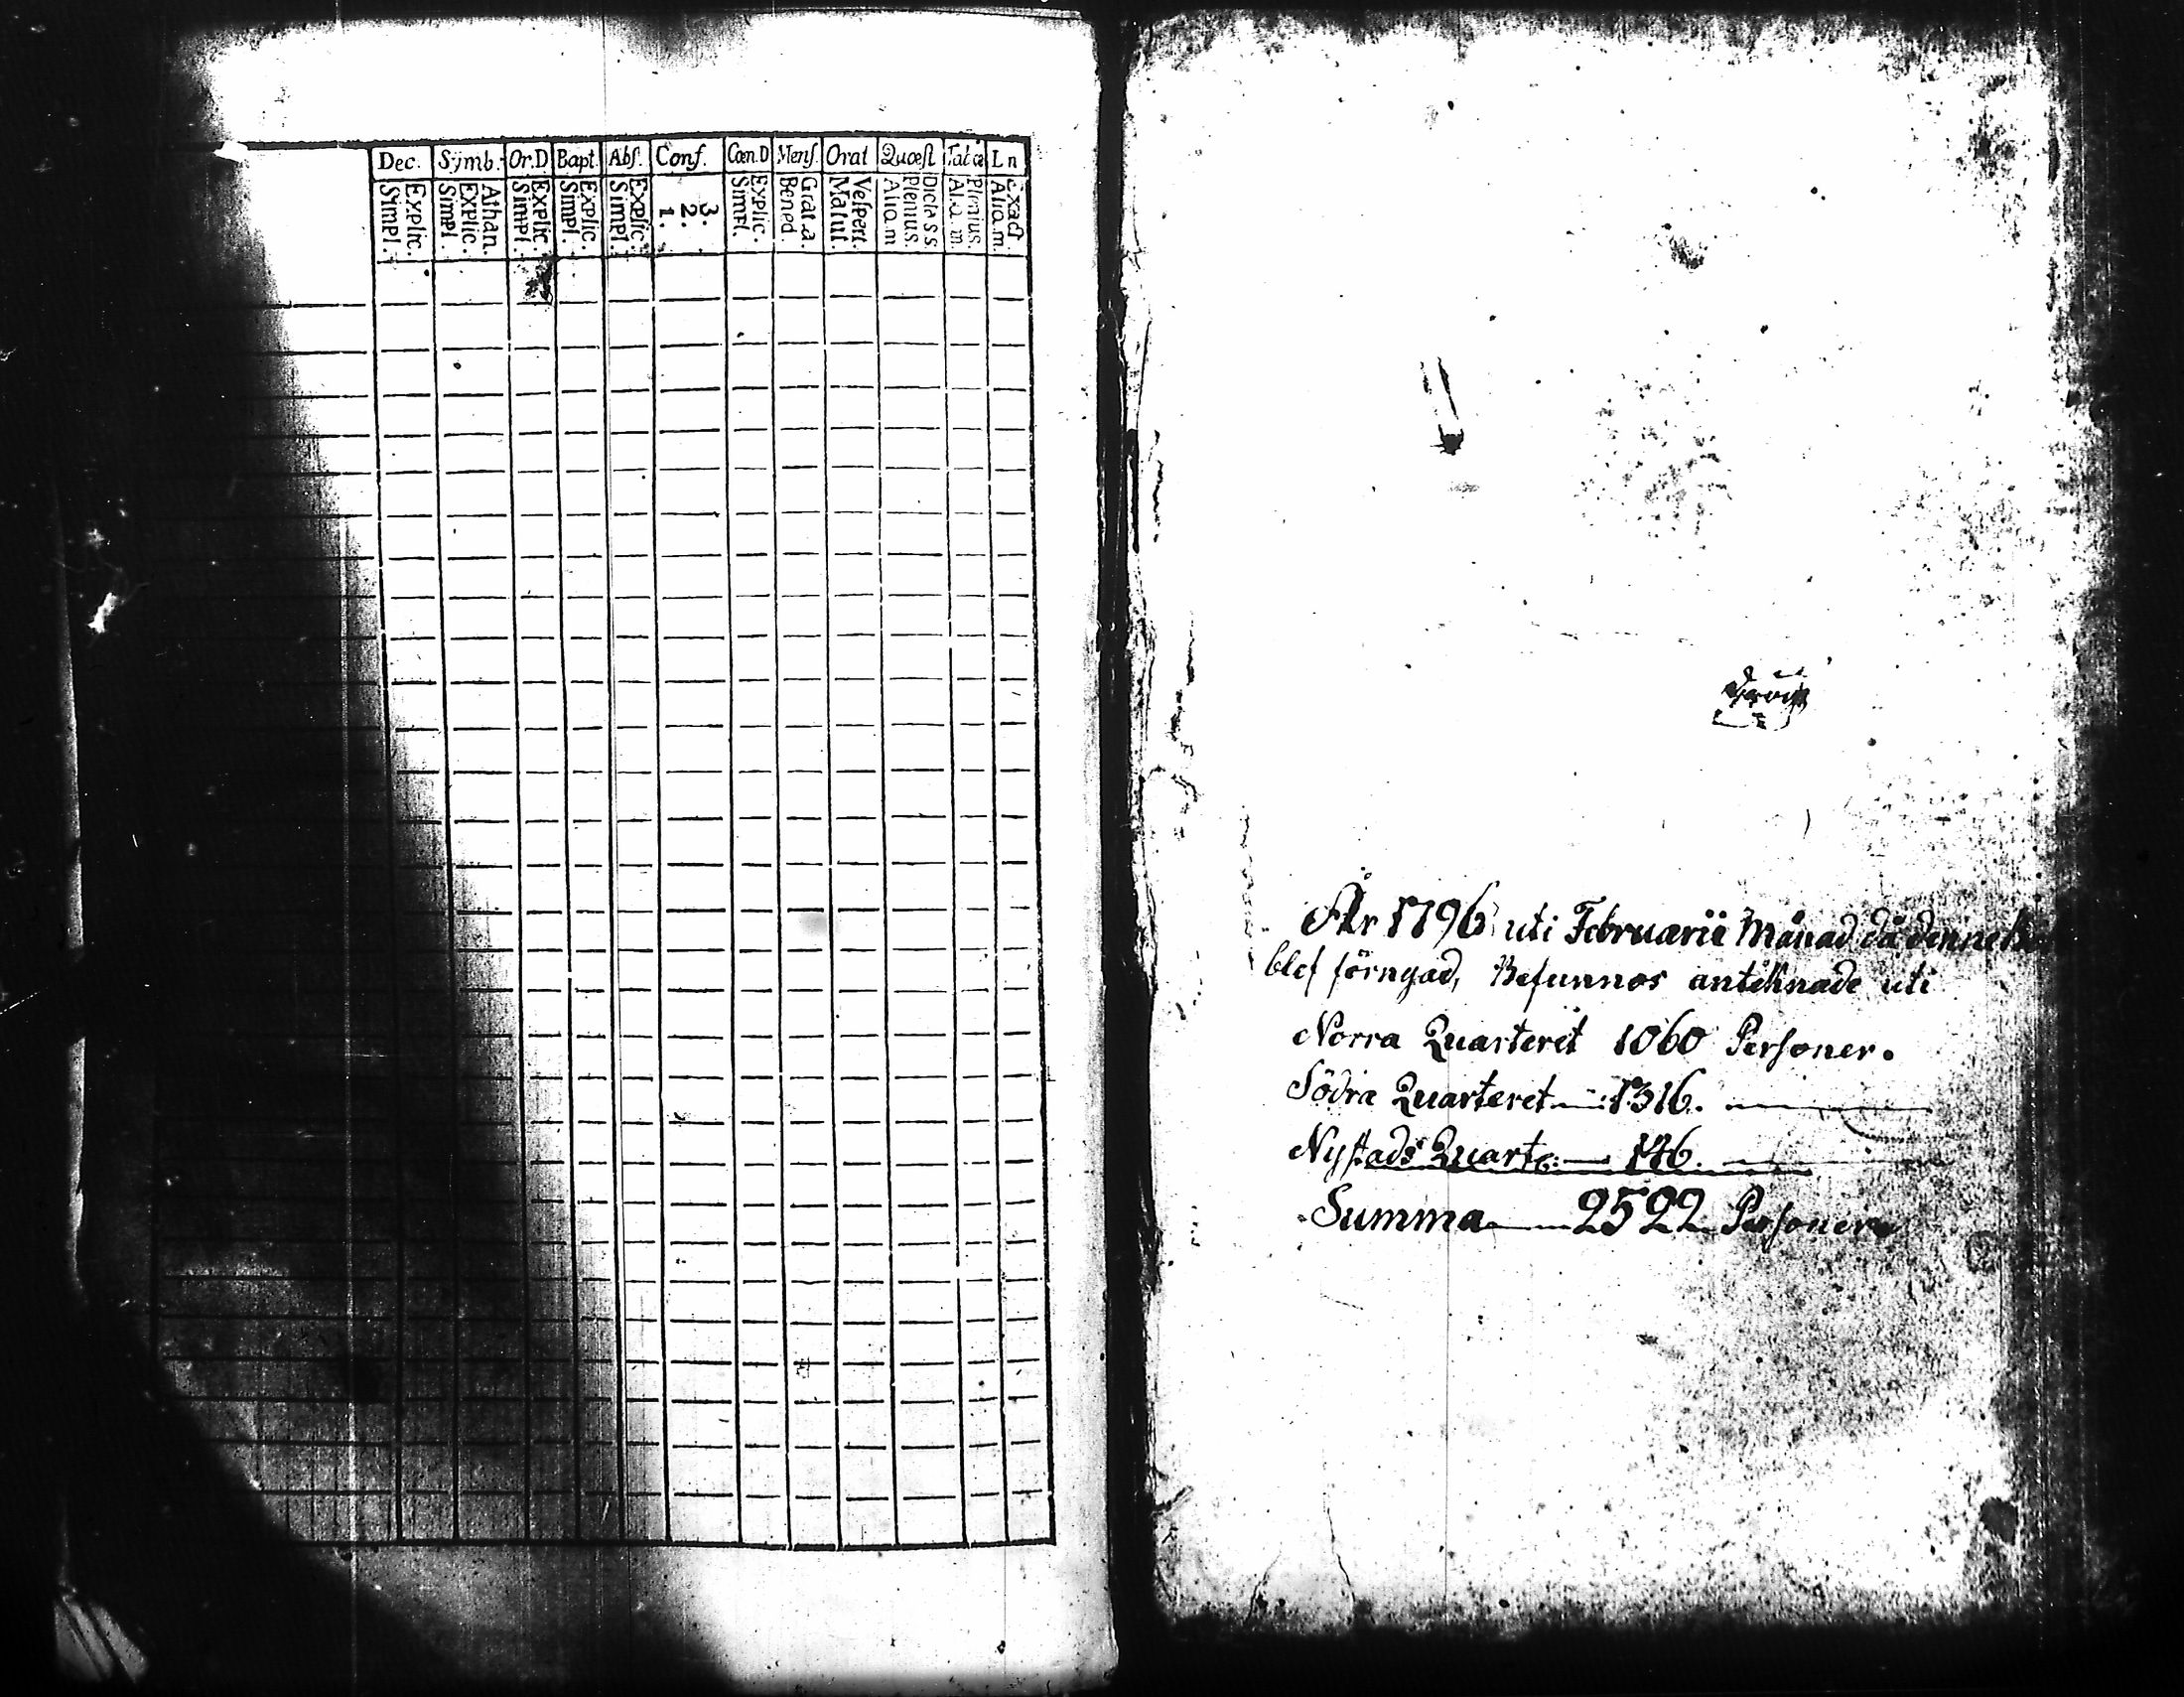 Dec. Symb. Or.D Bapt. Abs. Conf. Cœn.D Mens. Orat Quæst Tabæ Ln
Explic. Simpl.
Athan. Explic. Simpl.
Explic. Simpl.
Explic. Simpl.
Explic. Simpl.
3. 2. 1.
Explic. Simpl.
Grat.a. Bened.
Vespert. Matut.
Dicta S S. Plenius. Aliq.m
Plenius. Aliq.m.
Exact Aliq.m.
År 1796 uti Februarii Månad då denne
blef förnyad, Befunnos anteknade uti
Norra Quarteret 1060 Personer.
Södra Quarteret — 1316. —
Nystads Quart: — 146. —
Summa — 2522 Personer